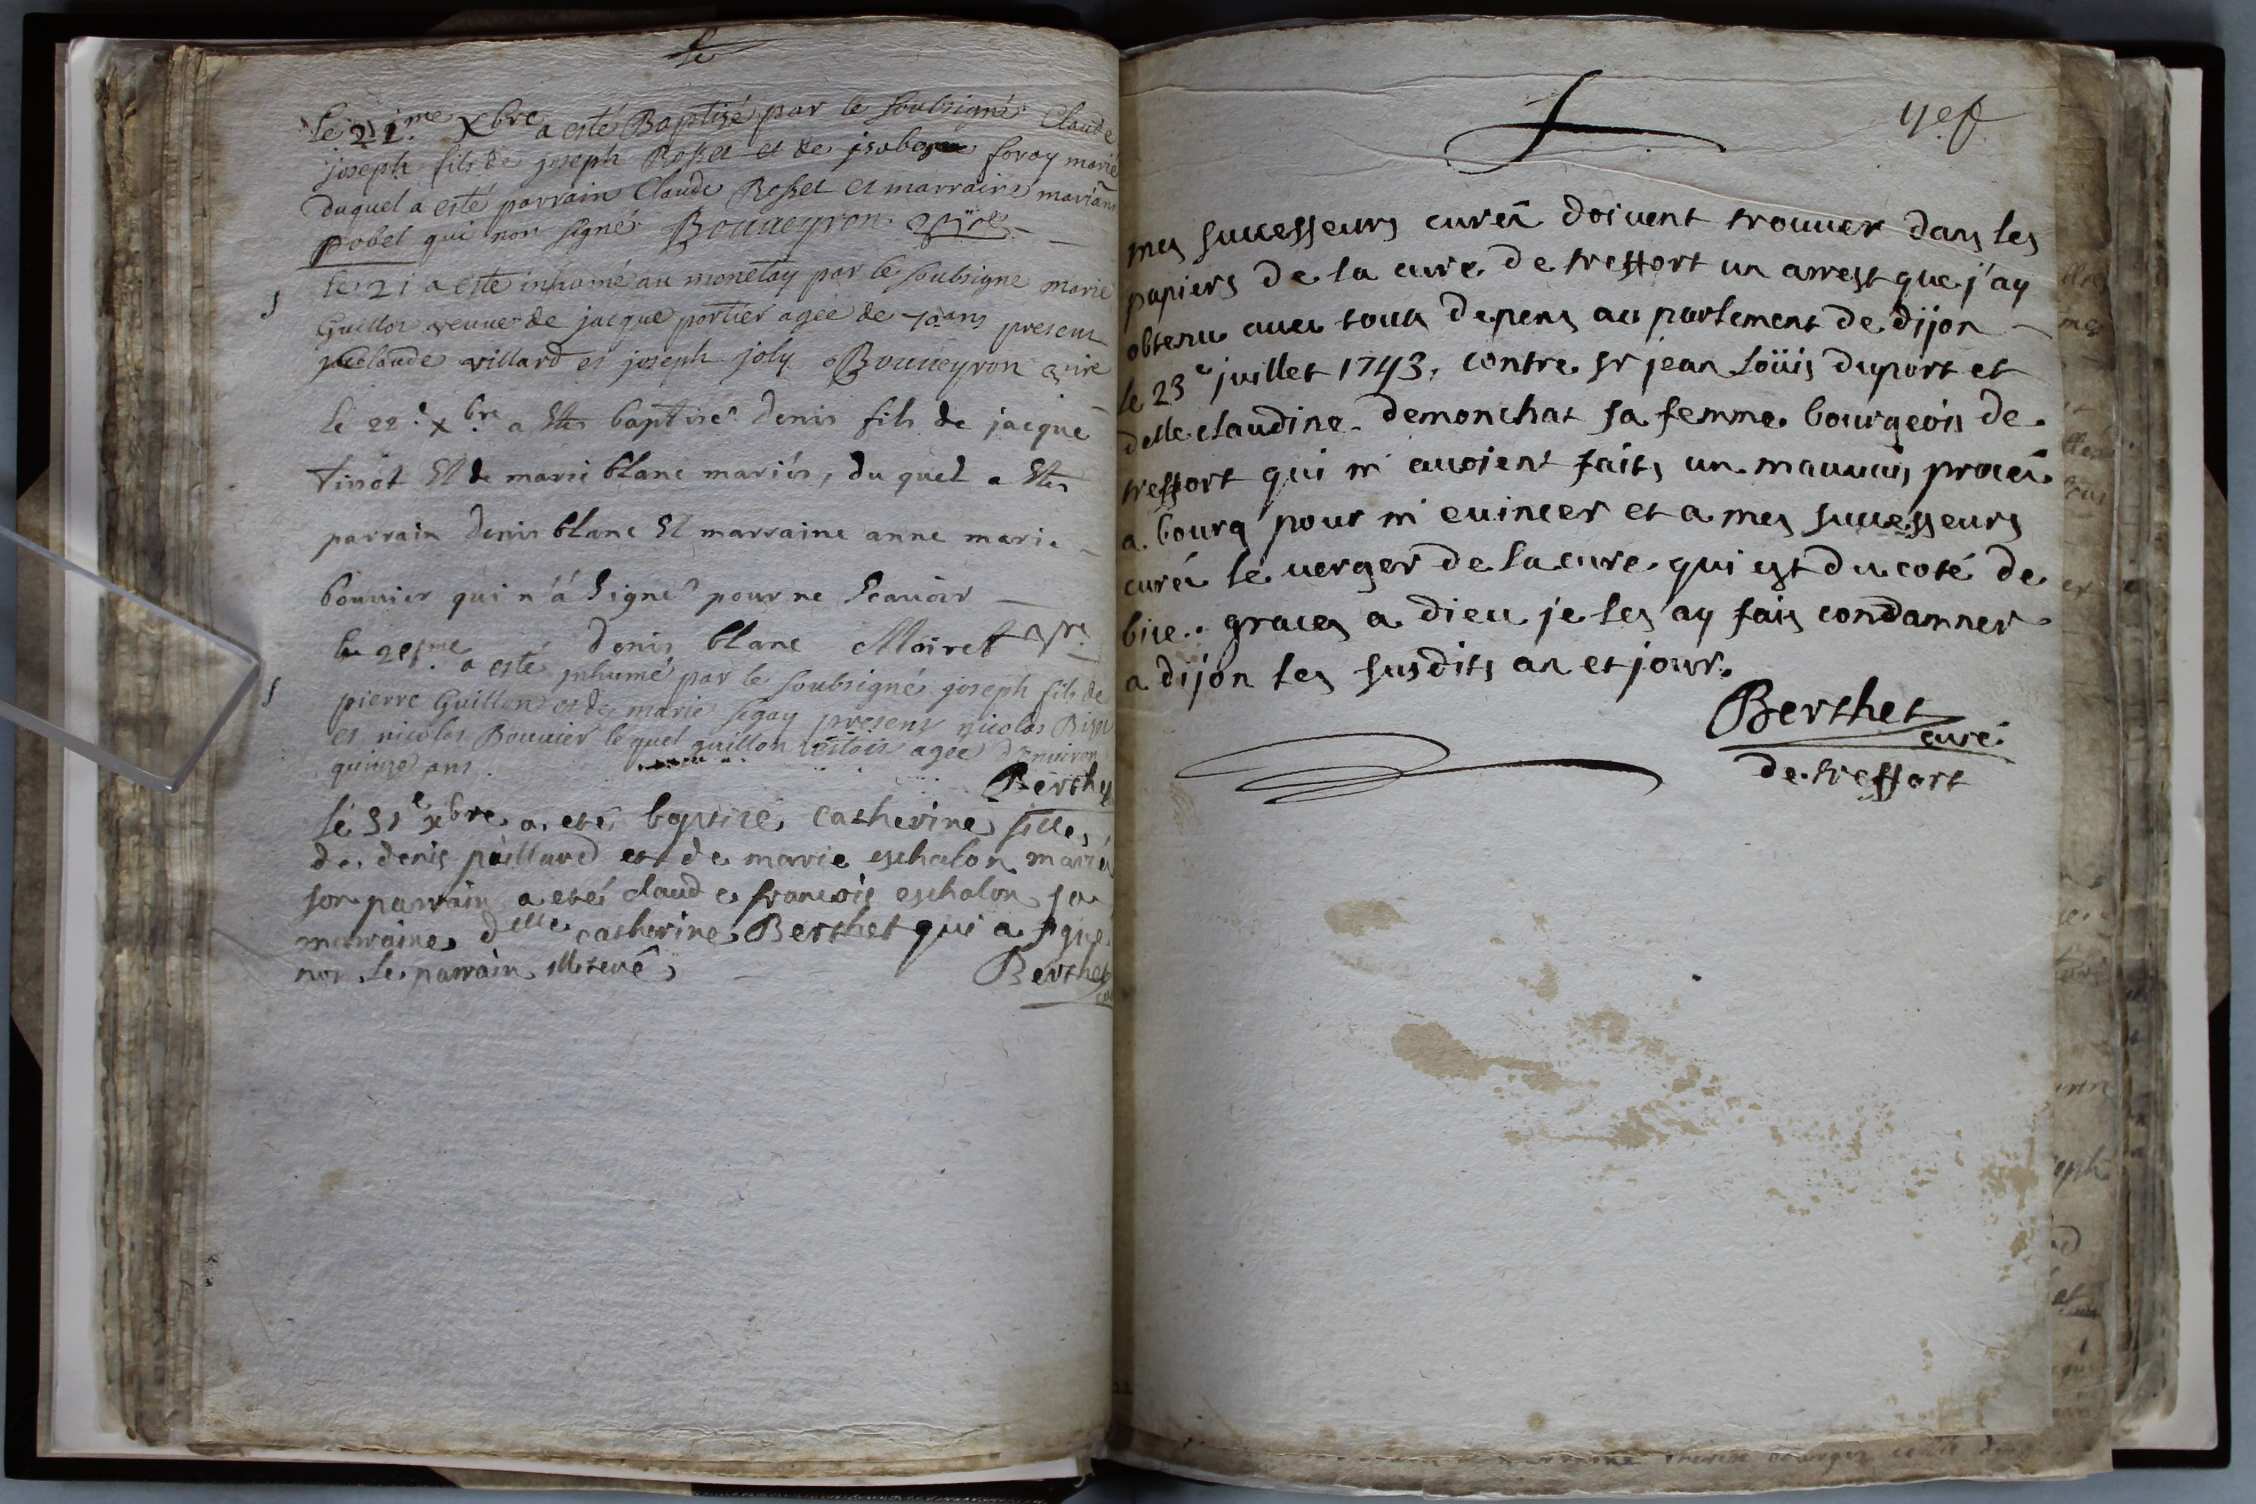 le 21.me Xbre a esté Baptizé par le soubsigné Claude
joseph fils de joseph Rosset et de foray marié
duquel a esté parrain Claude Rosset et marraine
pobel qui non signé Boüueyron
le 21 a esté inhumé au monetay par le soubsigné marie
Guillot veuue de jacque portier agée de 70 ans present
claude villard et joseph joly Boüueyron vire
le 22.e xbre a Eté baptisé denis fils de jacque
tissot Et de marie blanc mariés, du quel a Eté
parrain denis blanc Et marraine anne marie
bouuier qui n'a signé pour ne Scauoir
denis blanc Moiret vre
le a esté inhumé par le soubsigné joseph fils de
pierre Guillon et de marie segay present nicolas
et nicolas Bouuier lequel guillon estoit agee d'enuiron
quinze ans.
Berthet
le 31e xbre a eté baptisé catherine fille
de denis paillard et de marie eschalon mariés
son parrain a eté claude francois eschalon sa
marraine delle catherine Berthet qui a signé
non le parrain illiteré
Berthet
mes successeurs curés doivent trouuer dans les
papiers de la cure de treffort un arrest que j'ay
obtenu auec tous depens au parlement de dijon
le 23e juillet 1743, contre sr jean Loüis duport et
delle claudine demonchat sa femme bourgeois de
treffort qui m'auoient faits un mauuais procés
a bourg pour m'euincer et a mes successeurs
curés le verger de la cure qui est du coté de
bise.. graces a dieu je les ay fais condamner
a dijon les susdits an et jour.
Berthet
curé
de treffort